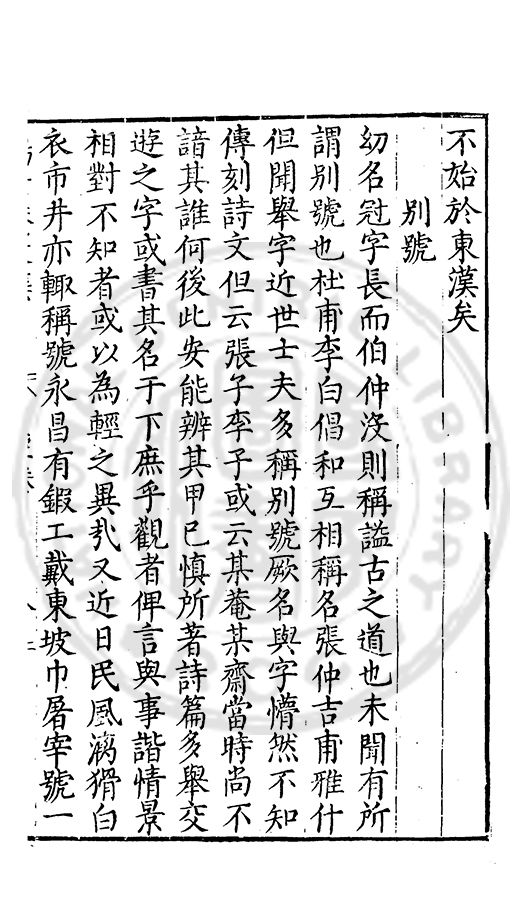 不始於東漢矣
別號
幼名冠字長而伯仲沒則稱謚古之道也未聞有所
謂別號也杜甫李白倡和互相稱名張仲吉甫雅什
但聞舉字近世士夫多稱別號厥名與字懵然不知
傳刻詩文但云張子李子或云某菴某齋當時尚不
諳其誰何後此安能辨其甲乙慎所著詩篇多舉交
遊之字或書其名于下庶乎觀者俾言與事諧情景
相對不知者或以為輕之異哉又近日民風漓猾白
衣市井亦輙稱號永昌有鍜工戴東坡巾屠宰號一